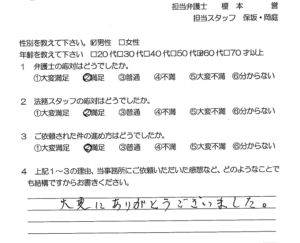 担当弁護士 榎本 誉
担当スタッフ 保坂・岡庭
性別を教えて下さい。☑男性 □女性
年齢を教えて下さい □20代□30代□40代□50代☑60代□70才以上
1 弁護士の応対はどうでしたか。
①大変満足 ②満足 ③普通 ④不満 ⑤大変不満 ⑥分からない
2 法務スタッフの応対はどうでしたか。
①大変満足 ②満足 ③普通 ④不満 ⑤大変不満 ⑥分からない
3 ご依頼された件の進め方はどうでしたか。
①大変満足 ②満足 ③普通 ④不満 ⑤大変不満 ⑥分からない
4 上記1~3の理由、当事務所にご依頼いただいた感想など、どのようなことで
も結構ですからお書きください。
大変にありがとうございました。